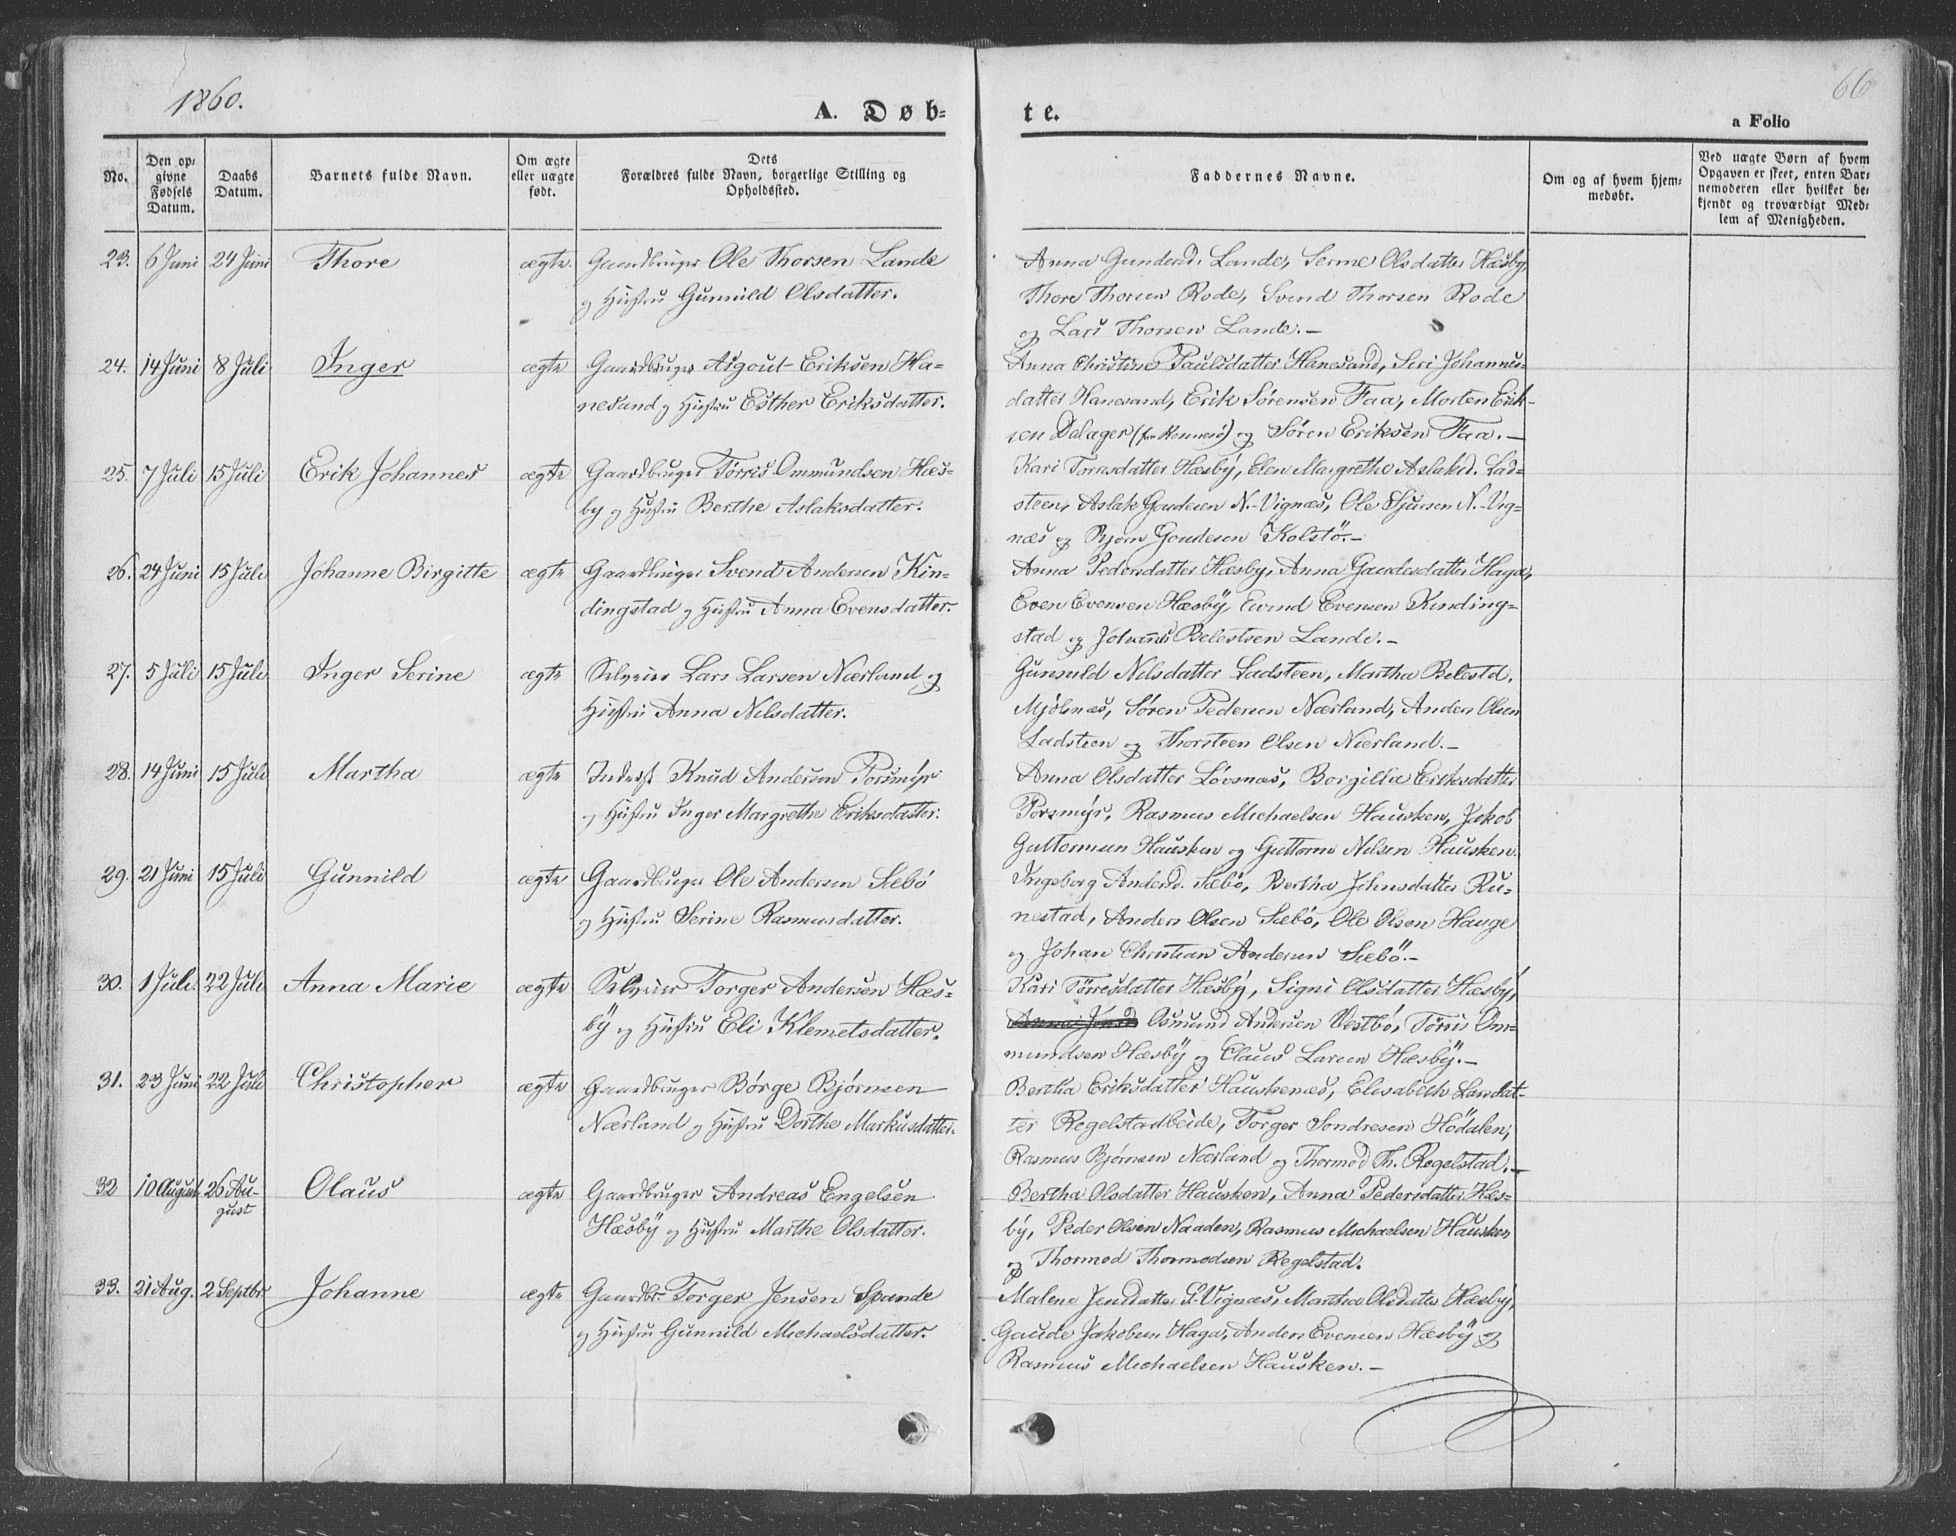 1860.
A. Døb-
te.
66
a Folio
No.
Den op-
givne
Fødsels
Datum.
Daabs
Datum.
Barnets fulde Navn.
Om ægte
eller uægte
født.
Dets
Forældres fulde Navn, borgerlige Stilling og
Opholdssted.
Faddernes Navne.
Om og af hvem hjem-
medøbt.
Ved uægte Børn af hvem
Opgaven er skeet, enten Bar-
nemoderen eller hvilket be-
kjendt og troværdigt Med-
lem af Menigheden.
23. 6 Juni 24 Juni Thore ægte. Gaardbruger Ole Thorsen Lande
og Hustru Gunnild Olsdatter.
Anna Gundersd. Lande, Serine Olsdatter Hæsby,
Thore Thorsen Rode, Svend Thorsen Rode
og Lars Thorsen Lande.-
24. 14 Juni 8 Juli Inger ægte Gaardbruger Asgout Eriksen Ha-
nesand og Hustru Esther Eriksdatter.
Anna Christine Paulsdatter Hanesand, Siri Johannes-
datter Hanesand, Erik Sørensen Faa, Morten Erik-
sen Dalager og Søren Eriksen Faa.-
25. 7 Juli 15 Juli Erik Johannes ægte Gaardbruger Tørris Ommundsen Hæs-
by og Hustru Berthe Aslaksdatter.
Kari Torrisdatter Hæsby, Elen Margrethe Aslaksd. Lad-
steen, Aslak Goudesen N.-Vignæs, Ole Sjursen N.-Vig-
næs og Bjørn Goudesen Kolstö.-
26. 24 Juni 15 Juli Johanne Birgitte ægte Gaardbruger Svend Andersen Kin-
dingstad og Hustru Anna Evensdatter.
Anna Pedersdatter Hæsby, Anna Gaudesdatter Haga,
Even Evensen Hæsby, Eivind Evensen Kinding-
stad og Johannes Belestsen Lande.-
27. 5 Juli 15 Juli Inger Serine ægte Selveier Lars Larsen Nærland og
Hustru Anna Nilsdatter.
Gunnild Nilsdatter Ladsteen, Martha Belestd.
Mjölsnæs, Søren Pedersen Nærland, Anders Olsen
Ladsteen og Thorsteen Olsen Nærland.-
28. 14 Juni 15 Juli Martha ægte Inderst Knud Andersen Porsmyr
og Hustru Inger Margrethe Eriksdatter.
Anna Olsdatter Løvsnæs, Borgilla Eriksdatter
Porsmyr, Rasmus Michaelsen Hausken, Jakob
Guttormsen Hausken og Guttorm Nilsen Hausken.
29. 21 Juni 15 Juli Gunnild ægte Gaardbruger Ole Andersen Sæbö
og Hustru Serine Rasmusdatter.
Ingeborg Andersd. Sæbö, Bertha Johnsdatter Ru-
nestad, Anders Olsen Sæbö, Ole Olsen Hauge
og Johan Christian Andersen Sæbö.-
30. 1 Juli. 22 Juli Anna Marie ægte Selveier Torger Andersen Hæs-
bÿ og Hustru Eli Klemetsdatter.
Kari Tørresdatter Hæsbÿ, Signi Olsdatter Hæsby,
Osmund Andersen Vestbö, Tørris Om-
mundsen Hæsbÿ og Claus Larsen Hæsbÿ.-
31. 23 Juni 22 Juli Christopher ægte Gaardbruger Börge Bjørnsen
Nærland og Hustru Dorthe Markusdatter.
Bertha Eriksdatter Hauskenæs, Elisabeth Larsdat-
ter Regelstadbeide, Torger Sondresen Hödalen,
Rasmus Bjørnsen Nærland og Thormod Th. Regelstad.-
32 10 August 26 Au-
gust
Olaus ægte Gaardbruger Andreas Engelsen
Hæsbÿ og Hustru Marthe Olsdatter.
Bertha Olsdatter Hausken, Anna Pedersdatter Hæs-
by, Peder Olsen Naaden, Rasmus Michaelsen Hausken
og Thormod Thormodsen Regelstad.
33. 21 Aug. 2 Septbr Johanne ægte Gaardbr. Torger Jensen Spande
og Hustru Gunnild Michaelsdatter.
Malene Jensdatter S. Vignæs, Martha Olsdatter Hæsby,
Gaude Jakobsen Haga, Anders Evensen Hæsbÿ og
Rasmus Michaelsen Hausken.-